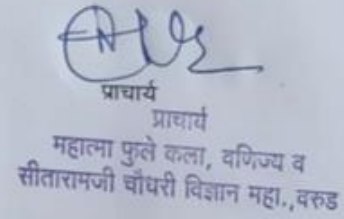 प्राचार्य
प्राचार्य
महात्मा फुले कला, वणिज्य व
सीतारामजी चौधरी विज्ञान महा.,वरुड